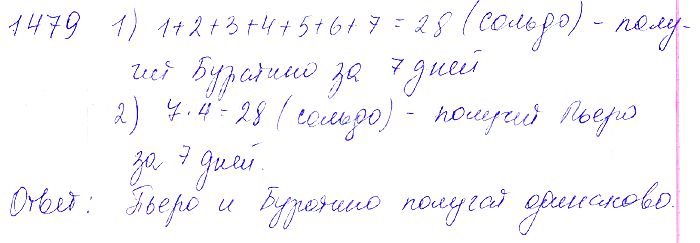 1479 1) 1+2+3+4+5+6+7=28 (сольдо) - полу-
чит Буратино за 7 дней
2) 7·4=28 (сольдо) - получит Пьеро
за 7 дней.
Ответ: Пьеро и Буратино получат одинаково.